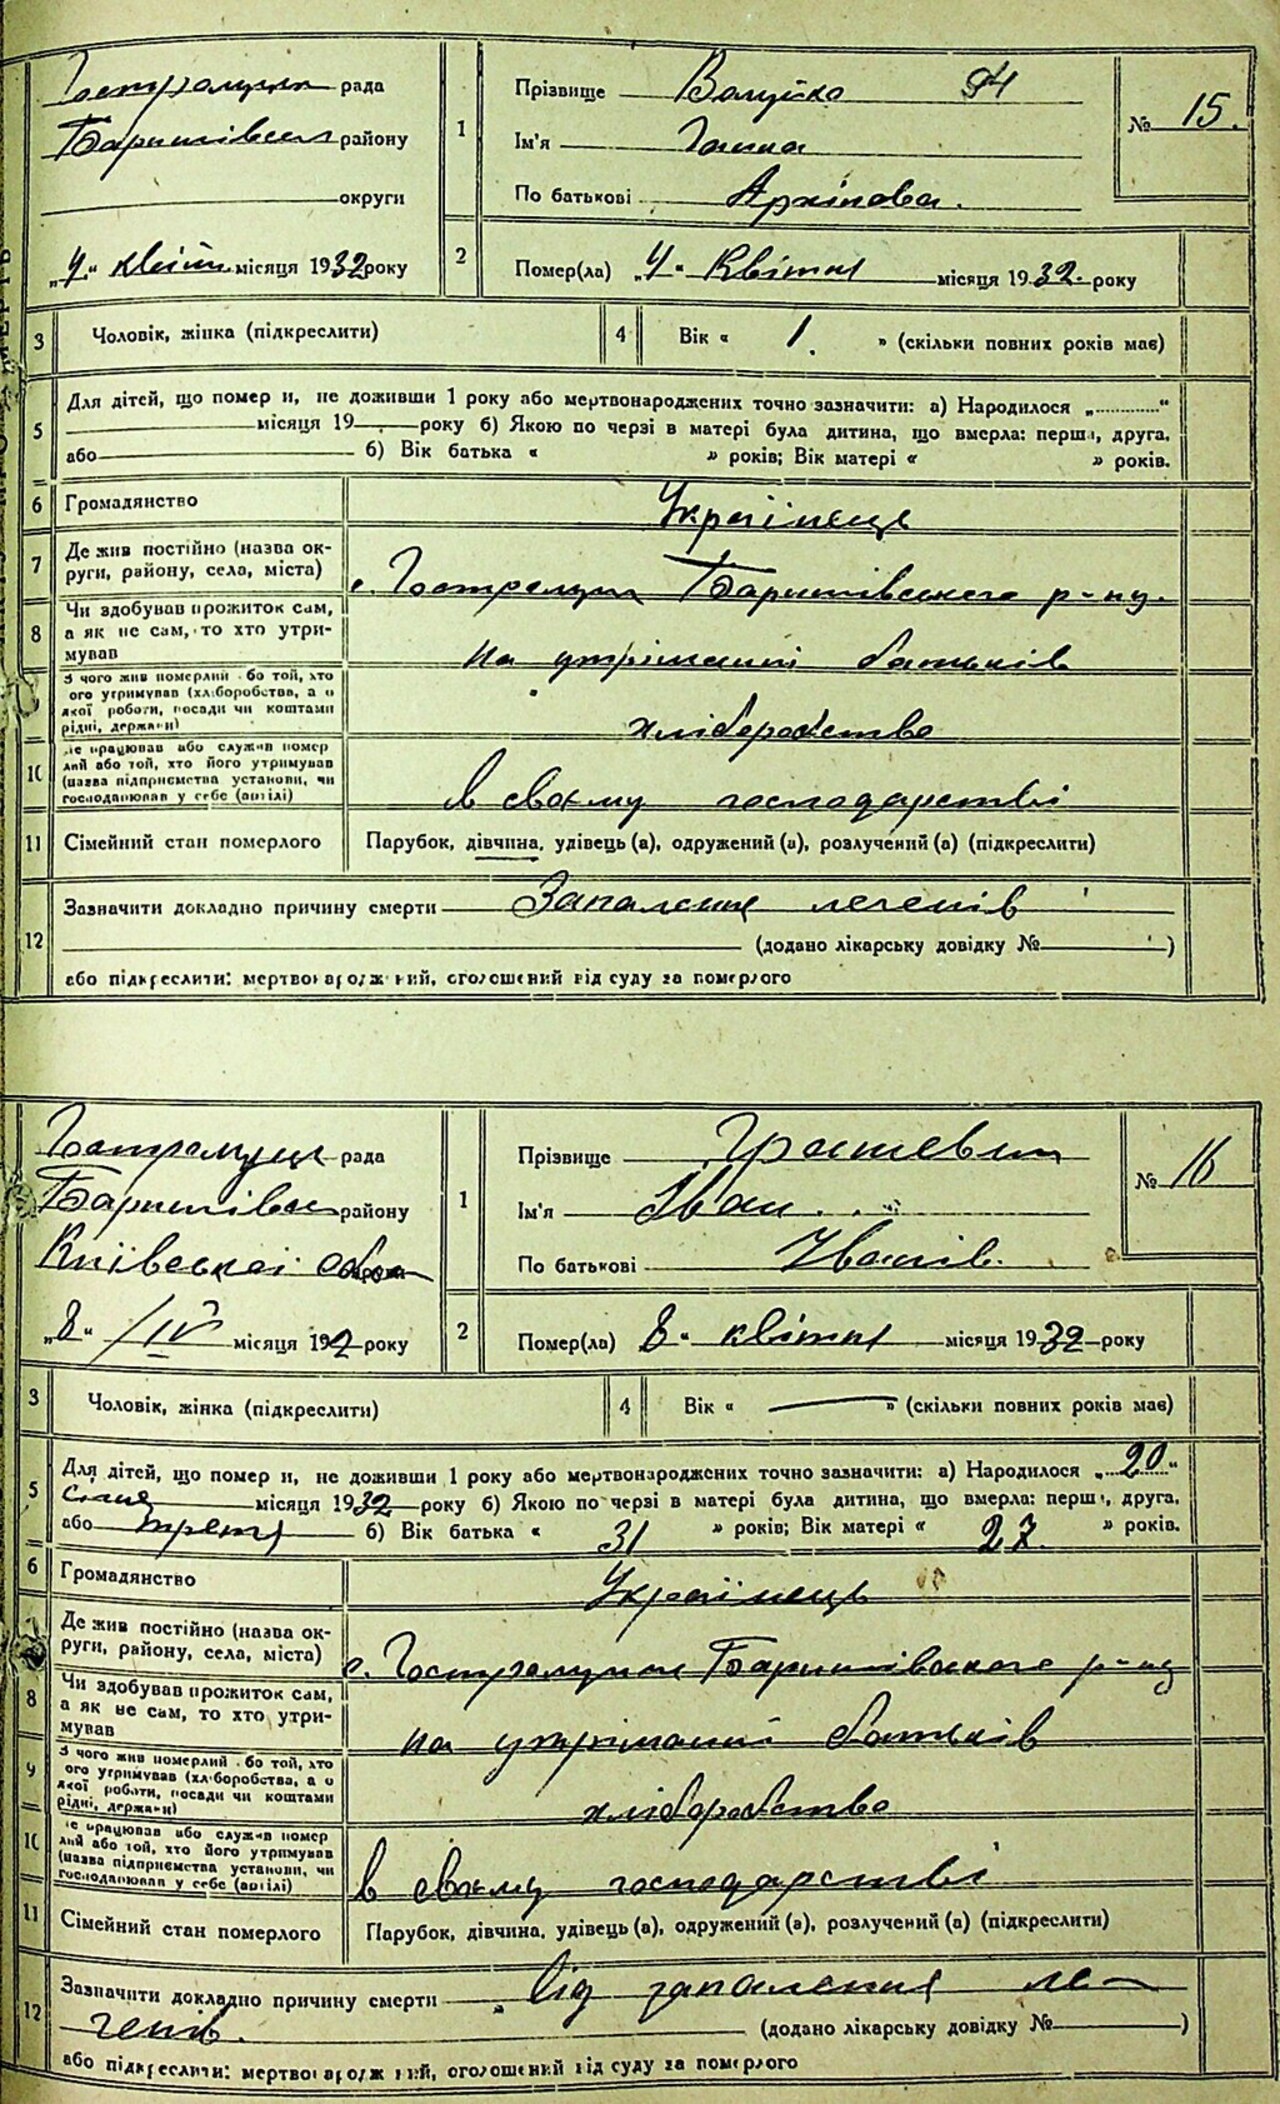 рада
Прізвище Валуйко 94
№ 15.
Баришівська району
1
Ім'я Ганна
округи
По батькові Архіпова.
„4“ квітн місяця 1932 року
2
Помер(ла) „4“ Квітня місяця 1932. року
3 Чоловік, жінка (підкреслити)
4 Вік « 1. » (скільки повних років має)
5 Для дітей, що помер и, не доживши 1 року або мертвонароджених точно зазначити: а) Народилося „.............“
місяця 19 року б) Якою по черзі в матері була дитина, що вмерла: перша, друга,
або б) Вік батька « » років; Вік матері « » років.
6 Громадянство Українець
7 Де жив постійно (назва ок-
руги, району, села, міста) с. Гостролуччя Баришівського р-ну.
8 Чи здобував прожиток сам,
а як не сам, то хто утри-
мував на утріманні батьків
З чого жив померлий або той, хто
ого утримував (хліборобства, а о
якої роботи, посади чи коштами
рідні, держави) хліборобство
10 Де працював або служив помер
лий або той, хто його утримував
(назва підприємства установи, чи
господарював у себе (артілі) в своєму господарстві
11 Сімейний стан померлого Парубок, дівчина, удівець (а), одружений (а), розлучений (а) (підкреслити)
12 Зазначити докладно причину смерти Запалення легенів
(додано лікарську довідку № )
або підкреслити: мертвонароджений, оголошений від суду за померлого
рада
Прізвище
№ 16
району
1
Ім'я Іван
Київської обл
По батькові Іванів.
„8“ /IV місяця 192 року
2
Помер(ла) 8“ квітня місяця 1932 року
3 Чоловік, жінка (підкреслити)
4 Вік « — » (скільки повних років має)
5 Для дітей, що помер и, не доживши 1 року або мертвонароджених точно зазначити: а) Народилося „20“
січня місяця 1932 року б) Якою по черзі в матері була дитина, що вмерла: перша, друга,
або третя б) Вік батька « 31 » років; Вік матері « 27. » років.
6 Громадянство Українець
Де жив постійно (назва ок-
руги, району, села, міста) с. Гостролуччя Баришівського р-ну
8 Чи здобував прожиток сам,
а як не сам, то хто утри-
мував на утріманні батьків
9 З чого жив померлий або той, хто
ого утримував (хліборобства, а о
якої роботи, посади чи коштами
рідні, держави) хліборобство
10 Де працював або служив помер
лий або той, хто його утримував
(назва підприємства установи, чи
господарював у себе (артілі) в своєму господарстві
11 Сімейний стан померлого Парубок, дівчина, удівець (а), одружений (а), розлучений (а) (підкреслити)
12 Зазначити докладно причину смерти від запалення ле-
генів.
(додано лікарську довідку № )
або підкреслити: мертвонароджений, оголошений від суду за померлого